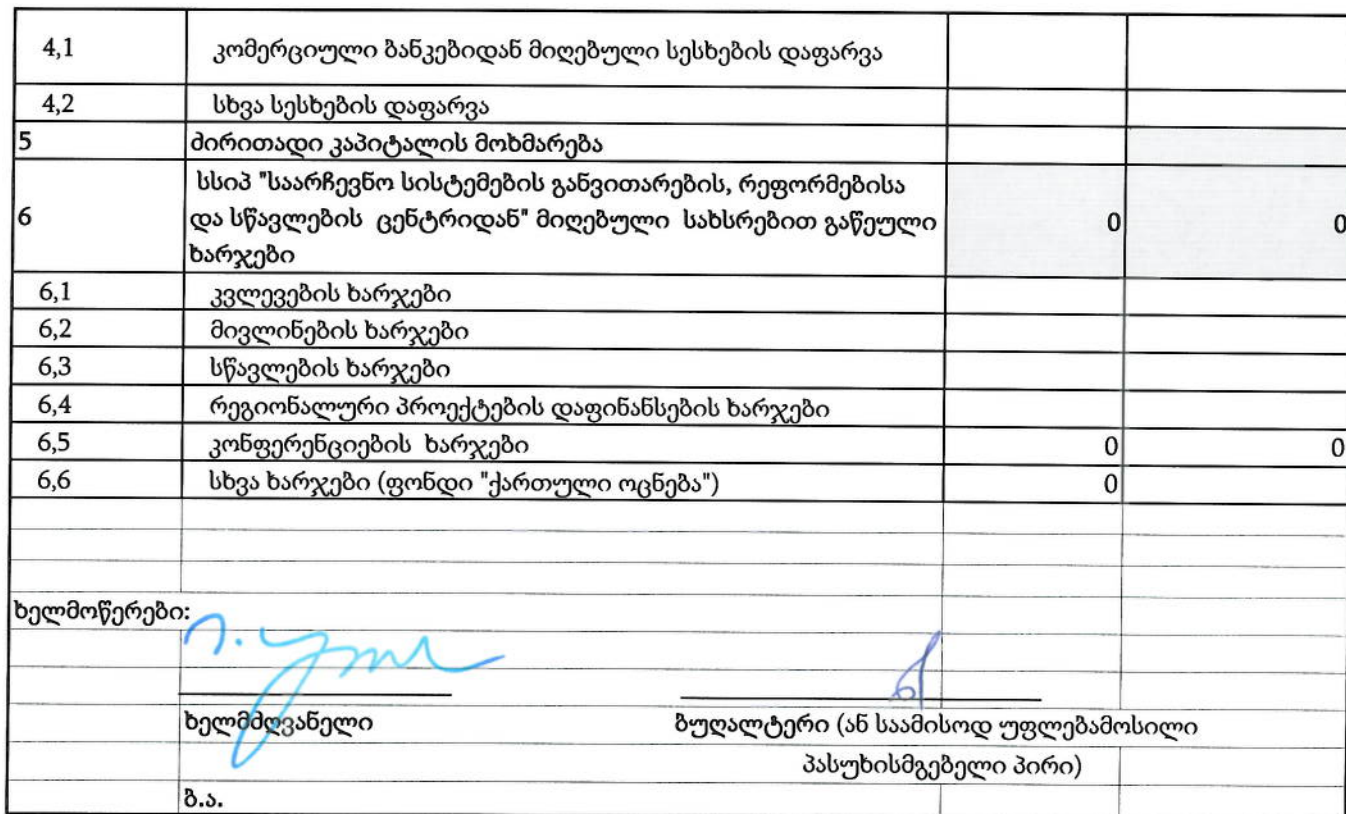 4,1 კომერციული ბანკებიდან მიღებული სესხების დაფარვა
4,2 სხვა სესხების დაფარვა
5 ძირითადი კაპიტალის მოხმარება
სსიპ "საარჩევნო სისტემების განვითარების, რეფორმებისა
6 და სწავლების ცენტრიდან" მიღებული სახსრებით გაწეული 0 0
ხარჯები
6,1 კვლევების ხარჯები
6,2 მივლინების ხარჯები
6,3 სწავლების ხარჯები
6,4 რეგიონალური პროექტების დაფინანსების ხარჯები
6,5 კონფერენციების ხარჯები 0 0
6,6 სხვა ხარჯები (ფონდი "ქართული ოცნება") 0
ხელმოწერები:
ხელმძღვანელი ბუღალტერი (ან საამისოდ უფლებამოსილი
პასუხისმგებელი პირი)
ბ.ა.